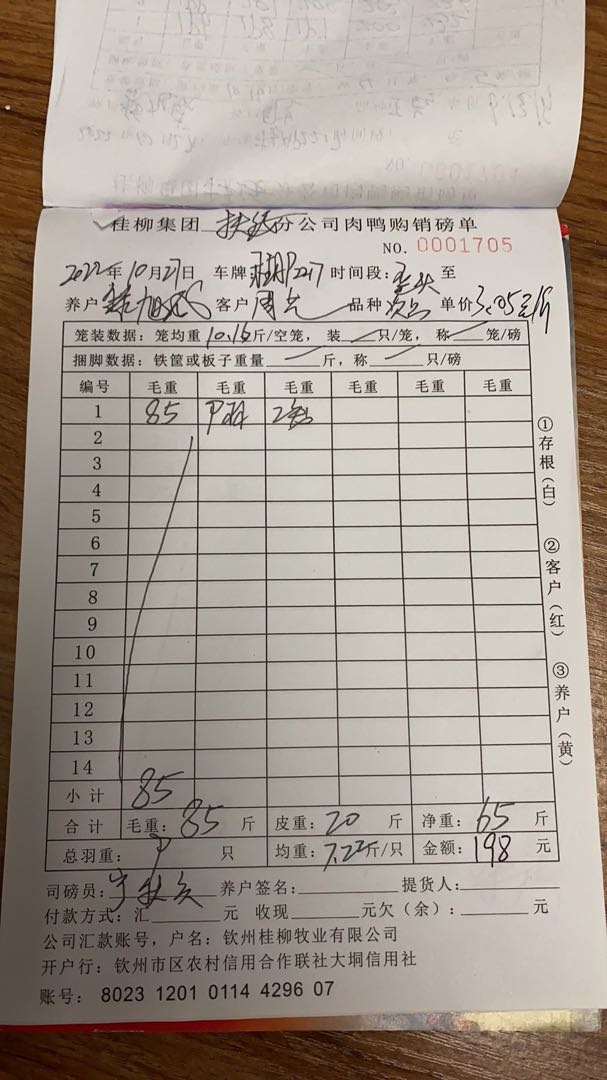 桂柳集团 份公司肉鸭购销磅单
NO. 0001705
2022年10月27日 车牌 时间段: 至
养户 客户 周 品种 单价3.05元/斤
笼装数据: 笼均重10.16斤/空笼, 装 只/笼, 称 笼/磅
捆脚数据: 铁筐或板子重量 斤, 称 只/磅
编号 毛重 毛重 毛重 毛重 毛重 毛重
1 85
2
3
4
5
6
7
8
9
10
11
12
13
14
小计 85
合计 毛重: 85 斤 皮重: 20 斤 净重: 65 斤
总羽重: 9 只 均重: 7.22斤/只 金额: 198 元
司磅员: 养户签名: 提货人:
付款方式: 汇 元 收现 元欠(余): 元
公司汇款账号, 户名: 钦州桂柳牧业有限公司
开户行: 钦州市区农村信用合作联社大垌信用社
账号: 8023 1201 0114 4296 07
①存根(白)
②客户(红)
③养户(黄)